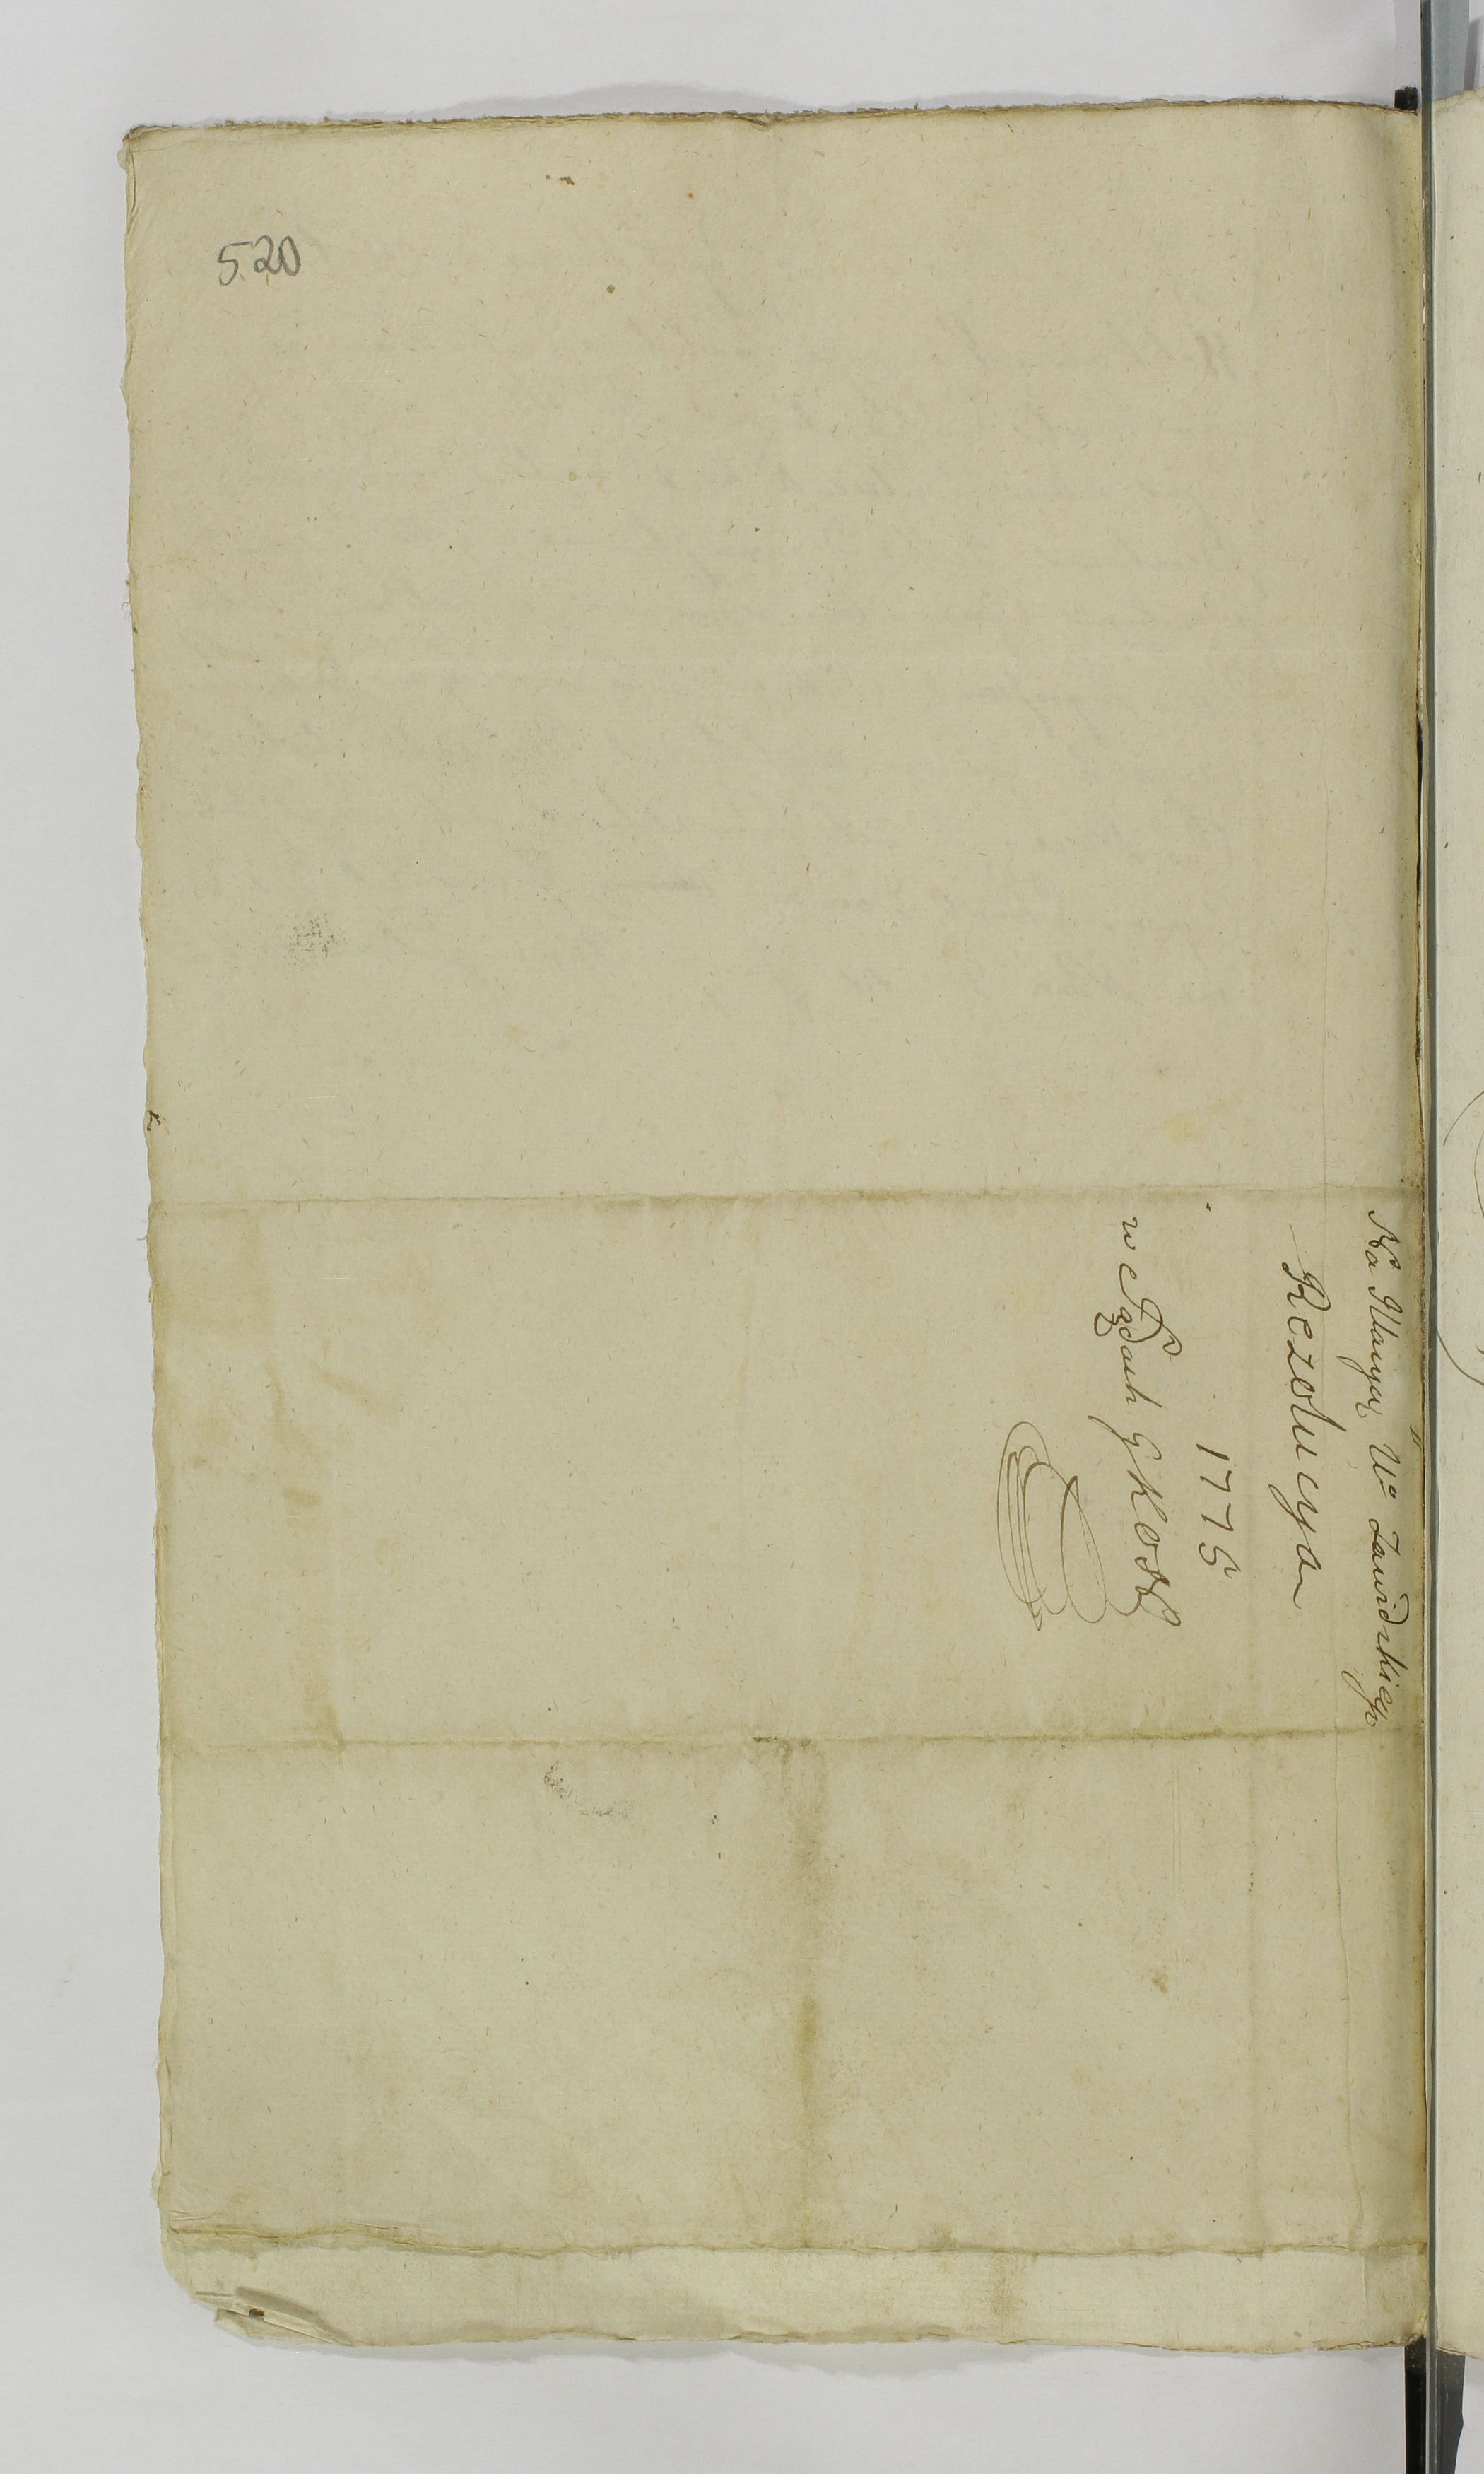 520
Na Illacyą W° Zawidzkiego
Rezolucya
1775
w Sądach GKOSK